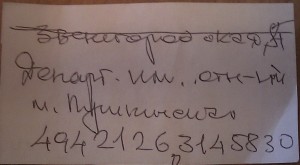 Звенигородская, 8Г
Департ. им. отн-ий
м. Пушкинская
494 21 26, 314 58 30